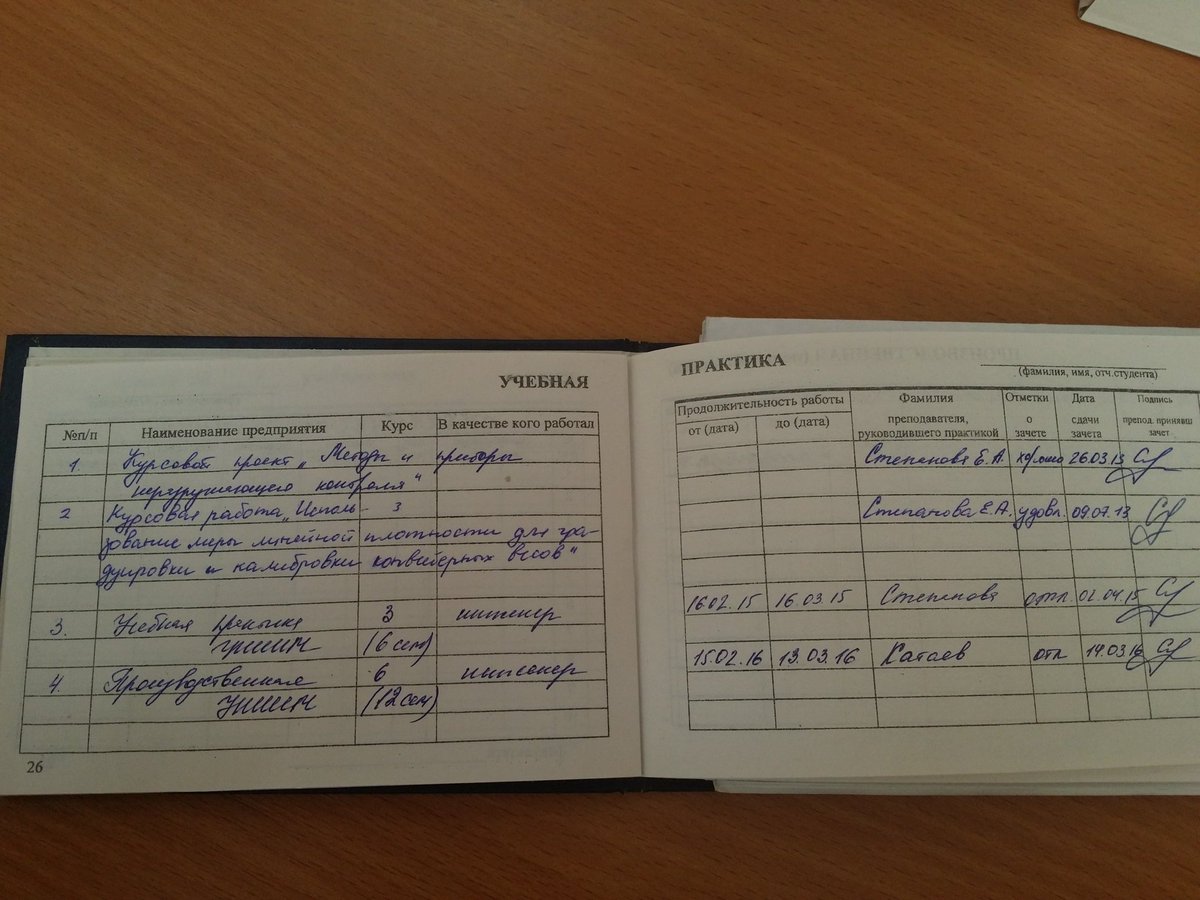 УЧЕБНАЯ
№п/п Наименование предприятия Курс В качестве кого работал
1. Курсовой проект „Методы и приборы
неразрушающего контроля“
2 Курсовая работа „Исполь- 3
зование меры линейной плотности для гра-
дуировки и калибровки конвейерных весов“
3. Учебная практика 3 инженер
(6 сем)
4. Производственная 6 инженер
(12 сем)
26
ПРАКТИКА
(фамилия, имя, отч.студента)
Продолжительность работы Фамилия Отметки Дата Подпись
от (дата) до (дата) преподавателя, о сдачи препод. принявш
руководившего практикой зачете зачета зачет
Степанова Е.А. хорошо 26.03.13
Степанова Е.А. удовл. 09.07.13
16.02.15 16.03.15 Степанова отл 02.04.15
15.02.16 13.03.16 Катаев отл 14.03.16